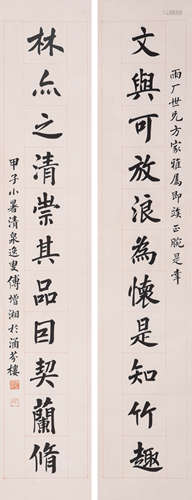 文與可放浪為懷是知竹趣
雨厂世兄方家雅屬即正腕是幸
林亦之清崇其品因契蘭脩
甲子小暑清泉逸叟傅增湘於涵芬樓